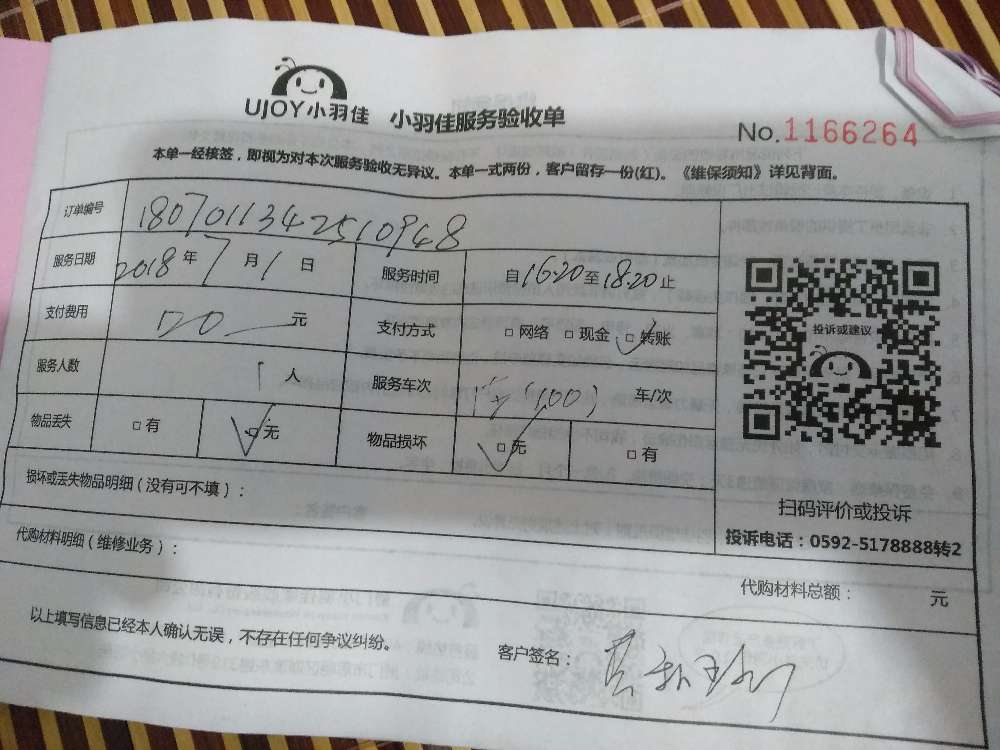 UJOY小羽佳 小羽佳服务验收单
No.1166264
本单一经核签，即视为对本次服务验收无异议。本单一式两份，客户留存一份(红)。《维保须知》详见背面。
订单编号 18070113425 10948
服务日期 2018年7月1日 服务时间 自16:20至18:20止
支付费用 120 元 支付方式 □网络 □现金 □转账
服务人数 1人 服务车次 (100) 车/次
物品丢失 □有 □无 物品损坏 □无 □有
损坏或丢失物品明细(没有可不填)：
投诉或建议
扫码评价或投诉
投诉电话：0592-5178888转2
代购材料明细(维修业务)：
代购材料总额： 元
以上填写信息已经本人确认无误，不存在任何争议纠纷。
客户签名：